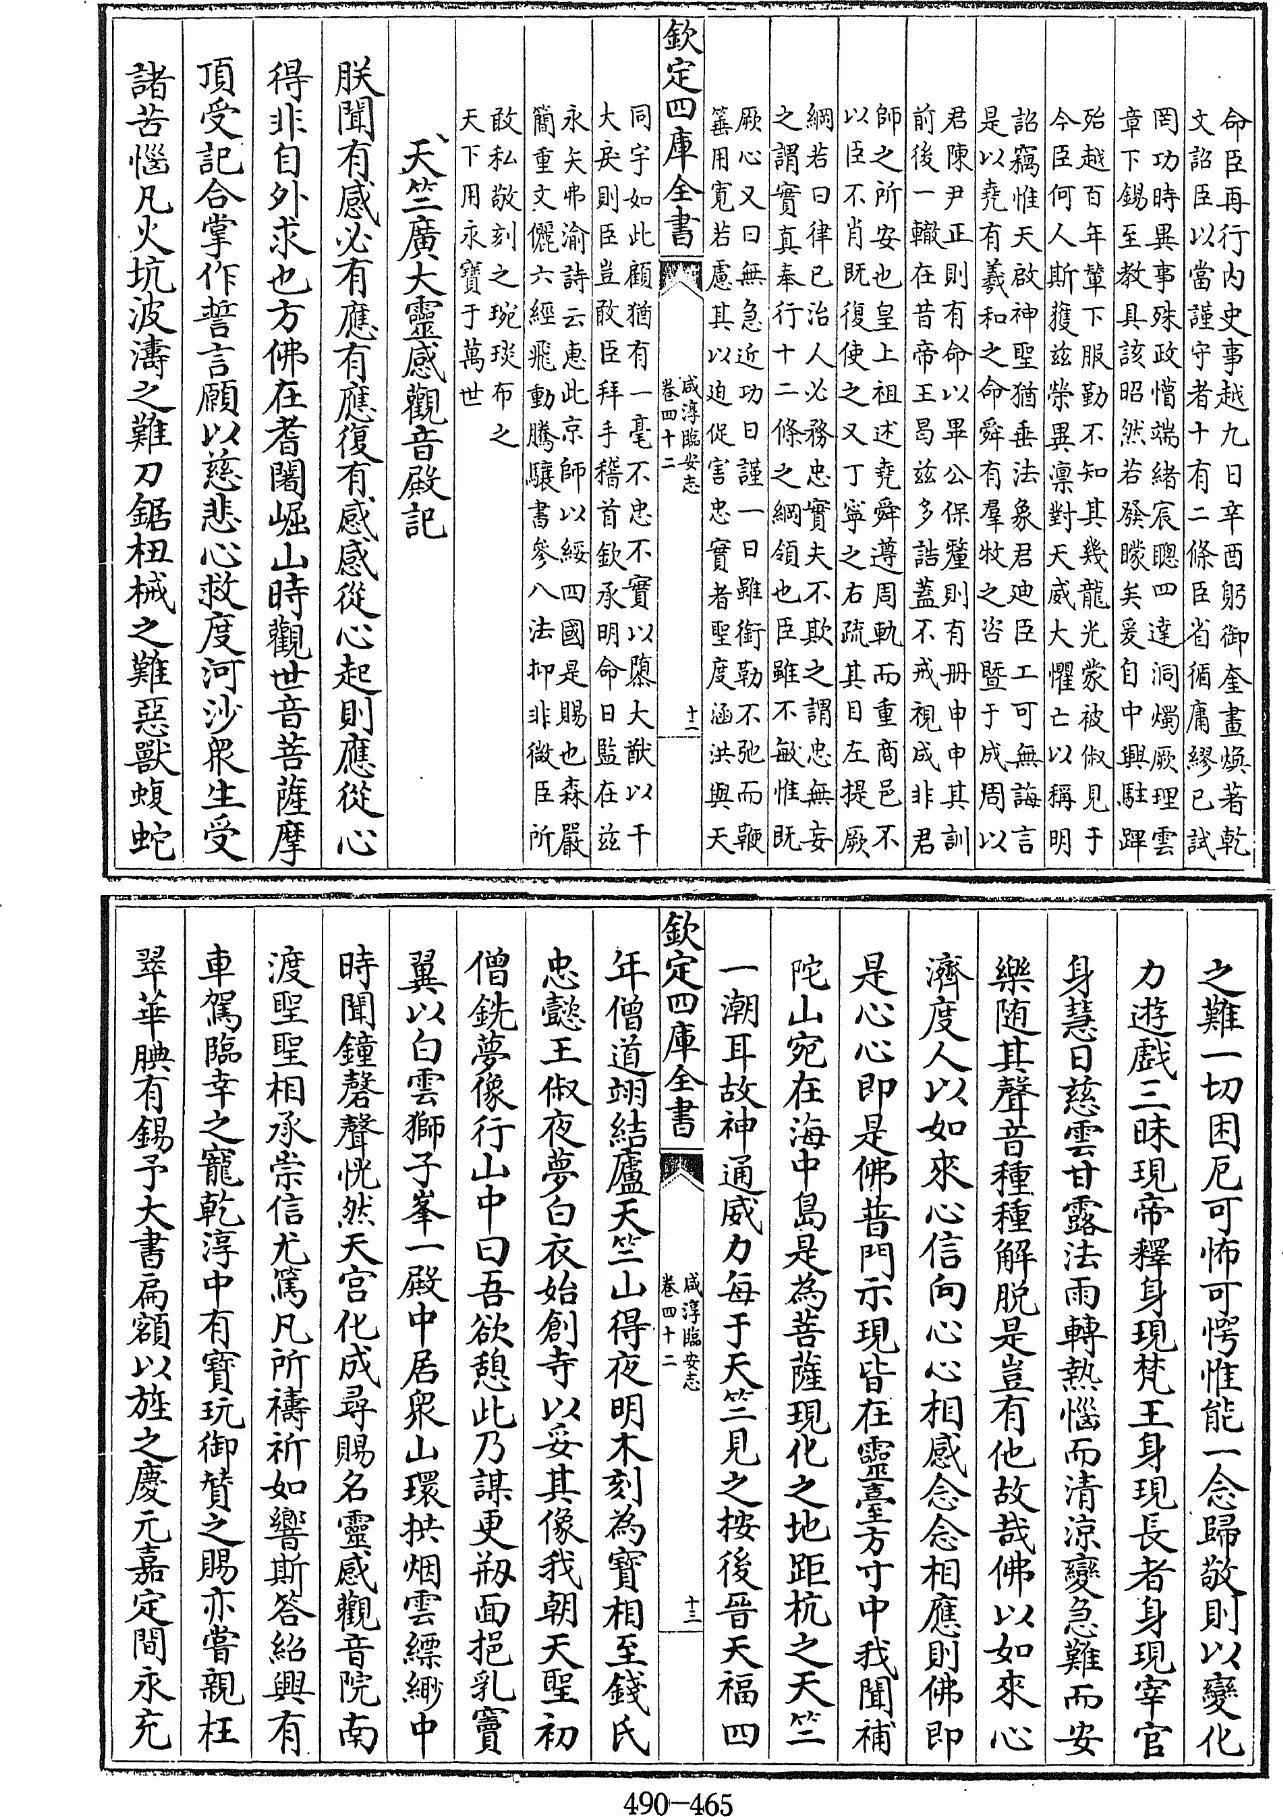 命臣再行内史事越九日辛酉躬御奎畫煥著乾
文詔臣以當謹守者十有二條臣省循庸繆已試
罔功時異事殊政懵端緒宸聰四達洞燭厥理雲
章下錫至教具該昭然若發矇矣爰自中興駐蹕
殆越百年輦下服勤不知其幾龍光蒙被俶見于
今臣何人斯獲兹榮異凛對天威大懼亡以稱明
詔竊惟天啟神聖猶垂法象君廸臣工可無誨言
是以堯有羲和之命舜有羣牧之咨暨于成周以
君陳尹正則有命以畢公保釐則有册申申其訓
前後一轍在昔帝王曷兹多誥蓋不戒視成非君
師之所安也皇上祖述堯舜遵周軌而重商邑不
以臣不肖既復使之又丁寧之右疏其目左提厥
綱若曰律已治人必務忠實夫不欺之謂忠無妄
之謂實真奉行十二條之綱領也臣雖不敏惟既
厥心又曰無急近功日謹一日雖銜勒不弛而鞭
箠用寛若慮其以迫促害忠實者聖度涵洪與天
欽定四庫全書
咸淳臨安志
卷四十二
十二
同宇如此顧猶有一毫不忠不實以隳大猷以干
大戾則臣豈敢臣拜手稽首欽承明命日監在兹
永矢弗渝詩云惠此京師以綏四國是賜也森嚴
簡重文儷六經飛動騰驤書參八法抑非微臣所
敢私敬刻之琬琰布之
天下用永寶于萬世
天竺廣大靈感觀音殿記
朕聞有感必有應有應復有感感從心起則應從心
得非自外求也方佛在耆闍崛山時觀世音菩薩摩
頂受記合掌作誓言願以慈悲心救度河沙衆生受
諸苦惱凡火坑波濤之難刀鋸杻械之難惡獸蝮蛇
之難一切困厄可怖可愕惟能一念歸敬則以變化
力遊戲三昧現帝釋身現梵王身現長者身現宰官
身慧日慈雲甘露法雨轉熱惱而清涼變急難而安
樂随其聲音種種解脱是豈有他故哉佛以如來心
濟度人以如來心信向心心相感念念相應則佛即
是心心即是佛普門示現皆在靈臺方寸中我聞補
陀山宛在海中島是為菩薩現化之地距杭之天竺
一潮耳故神通威力每于天竺見之按後晉天福四
欽定四庫全書
咸淳臨安志
卷四十二
十三
年僧道翊結廬天竺山得夜明木刻為寶相至錢氏
忠懿王俶夜夢白衣始創寺以妥其像我朝天聖初
僧銑夢像行山中曰吾欲憩此乃謀更剏面挹乳竇
翼以白雲獅子峯一殿中居衆山環拱烟雲縹緲中
時聞鐘磬聲恍然天宫化成尋賜名靈感觀音院南
渡聖聖相承崇信尤篤凡所禱祈如響斯答紹興有
車駕臨幸之寵乾淳中有寳玩御贊之賜亦嘗親枉
翠華腆有錫予大書扁額以旌之慶元嘉定間永充
490-465